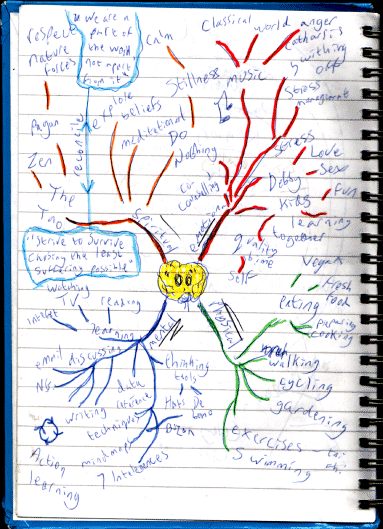 "we are a
part of
the world
not apart
from it"
respect
nature
forces
Pagan
Zen
The
Tao
reconcile
calm
explore
beliefs
meditational
Do
Nothing
Stillness
spiritual
"strive to survive
causing the least
suffering possible"
Classical
world
anger
catharsis
switching
off
music
stress
management
stress
Love
Sex
Debby
Fun
Kids
learning
together
quality
time
self
co-
counselling
emotional
watching
TV
reading
internet
learning
email
discussing
mental
thinking
tools
Hats De
Bono
data
writing
techniques
mindmaps
7 Inteligences
Action
learning
Physical
Vegan
fresh
food
eating
preparing
cooking
walking
cycling
gardening
exercises - tai
chi
Swimming